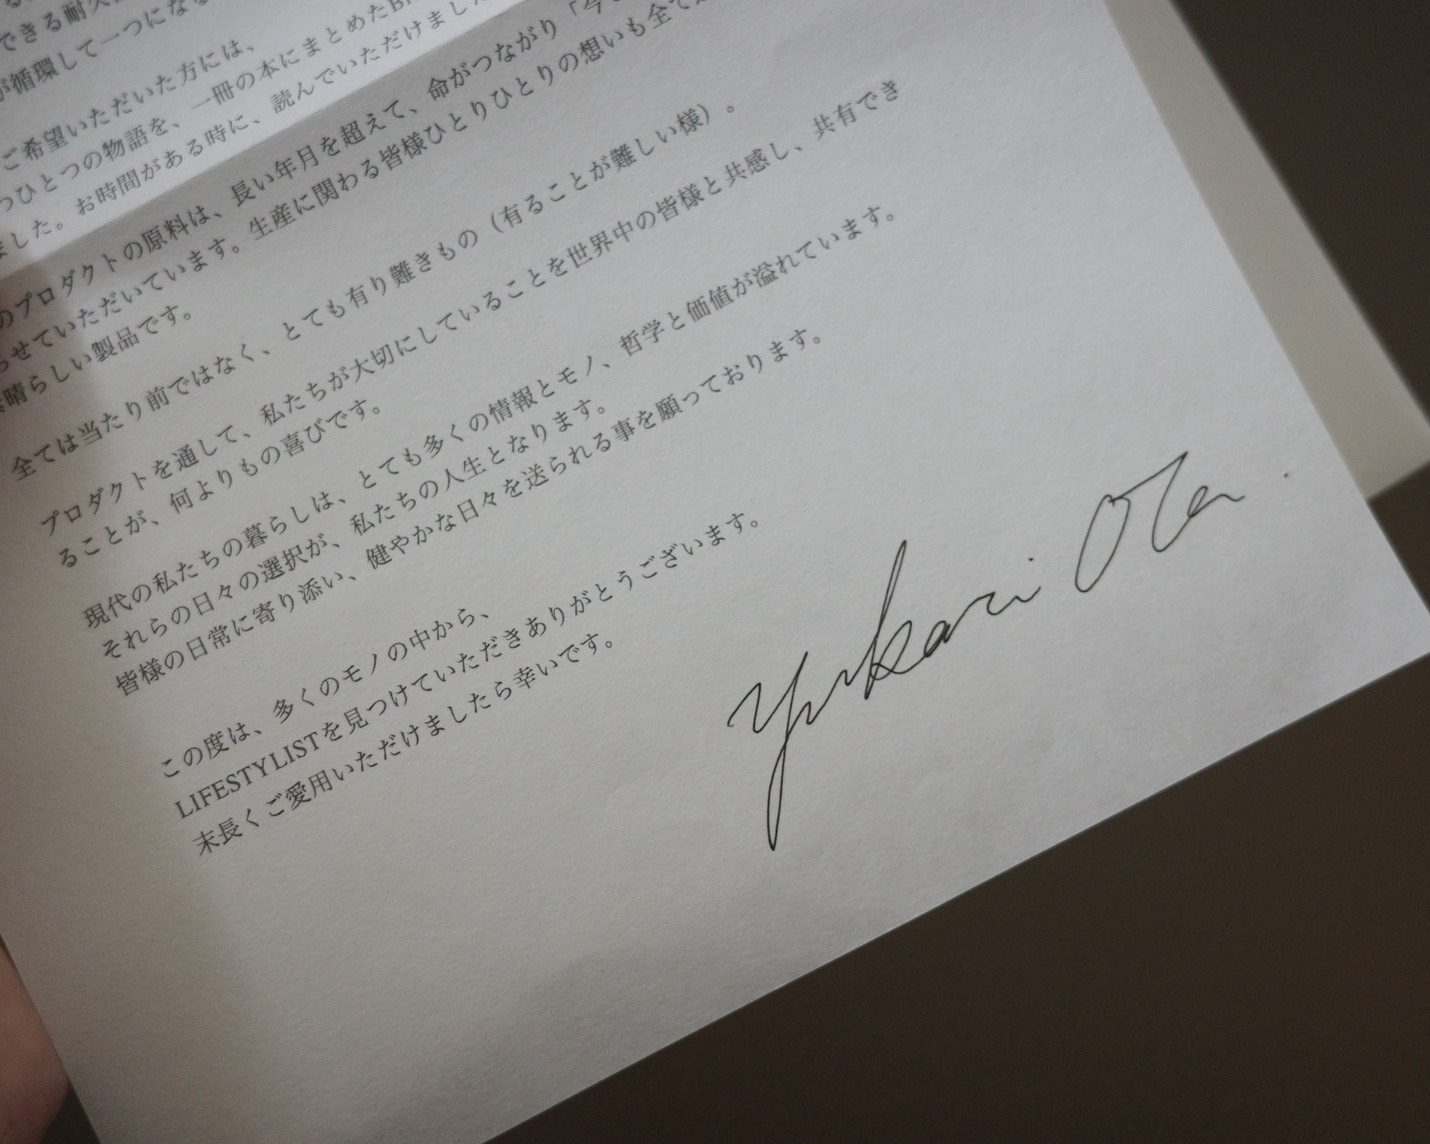 できる耐久
が循環して一つにな
ご希望いただいた方には、
つひとつの物語を、一冊の本にまとめた
ました。お時間がある時に、読んでいただけました
のプロダクトの原料は、長い年月を超えて、命がつながり「今
らせていただいています。生産に関わる皆様ひとりひとりの想いも全て
晴らしい製品です。
全ては当たり前ではなく、とても有り難きもの（有ることが難しい様）。
プロダクトを通して、私たちが大切にしていることを世界中の皆様と共感し、共有でき
ることが、何よりもの喜びです。
現代の私たちの暮らしは、とても多くの情報とモノ、哲学と価値が溢れています。
それらの日々の選択が、私たちの人生となります。
皆様の日常に寄り添い、健やかな日々を送られる事を願っております。
この度は、多くのモノの中から、
LIFESTYLISTを見つけていただきありがとうございます。
末長くご愛用いただけましたら幸いです。
Yukari Ota.